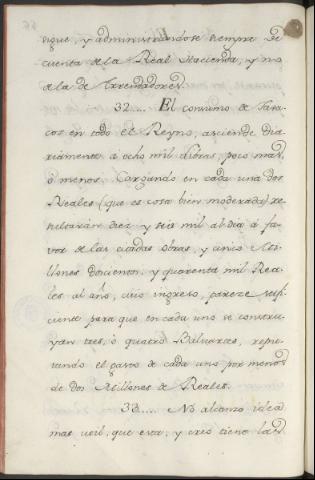 sigue, y administrandose siempre de
cuenta de la Real Hacienda, y no
de la de Arrendadores.
32.... El consumo de Taba-
cos en todo el Reyno, asciende dia-
riamente à ocho mil Libras, poco mas,
ò menos. Cargando en cada una dos
Reales (que es cosa bien moderada) re-
sultarán diez y seis mil al dia à fa-
vor de las citadas obras, y cinco Mi-
llones doscientos, y quarenta mil Rea-
les al año, cuio ingreso, pareze sufi-
ciente para que en cada uno se constru-
yan tres, ò quatro
el gasto de cada uno por menos
de dos Millones de Reales.
33.... No alcanzo idea
mas util, que esta, y creo tiene las